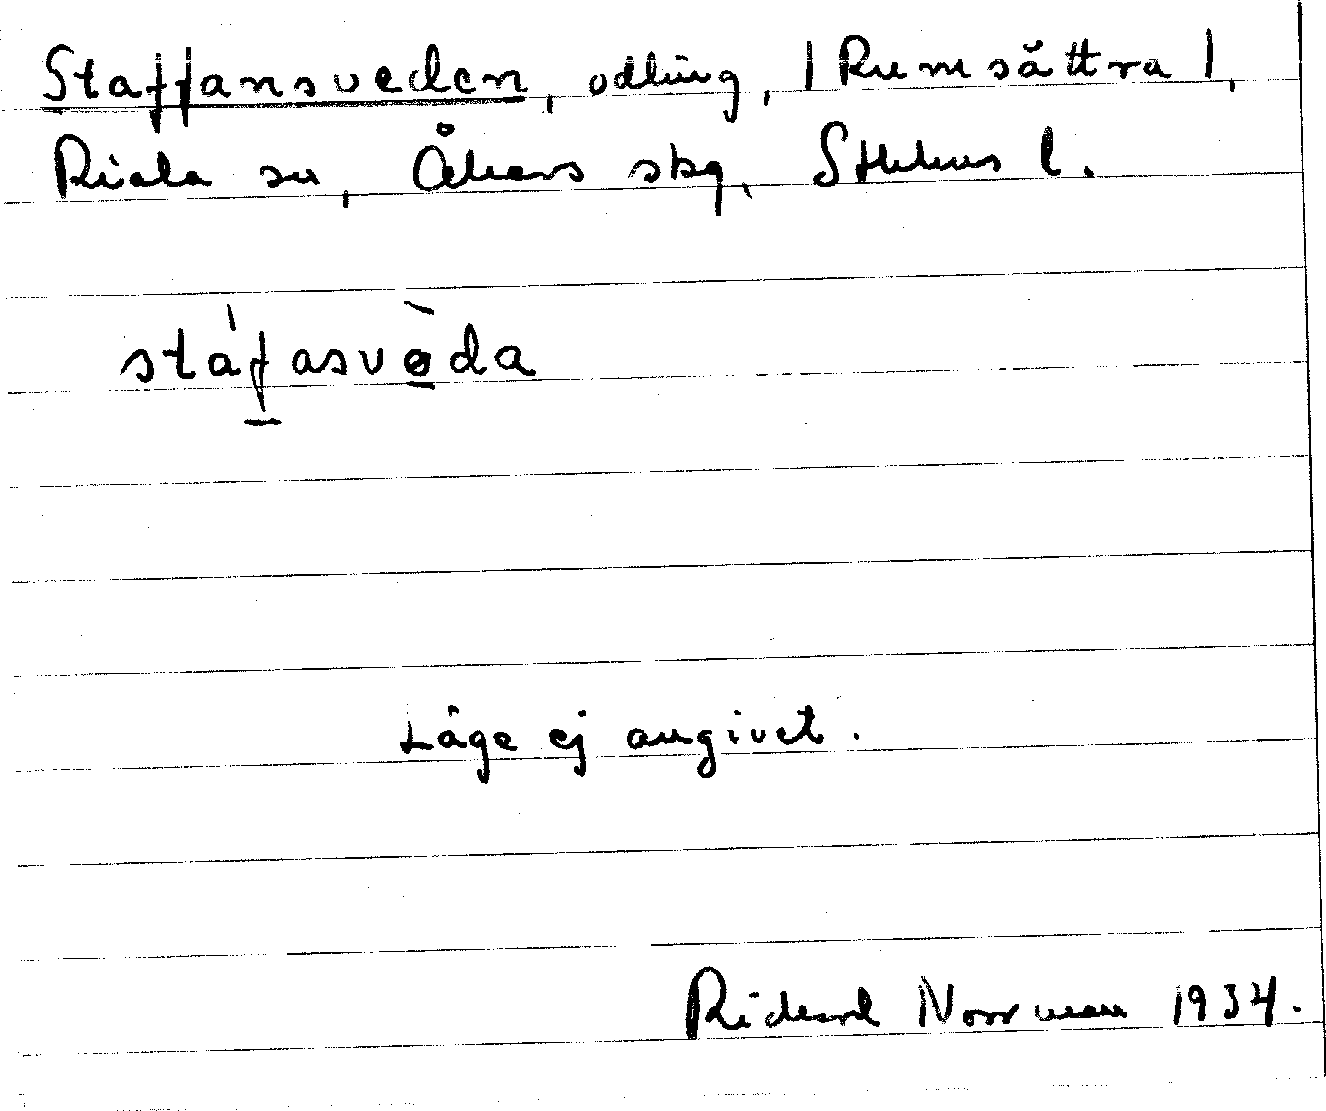 Staffansveden, odling, | Rumsättra |,
Riala sn, Åkers skg, Sthlms l.
stáf̲asvə̲̀da
Läge ej angivet.
Rickard Norrman 1934.